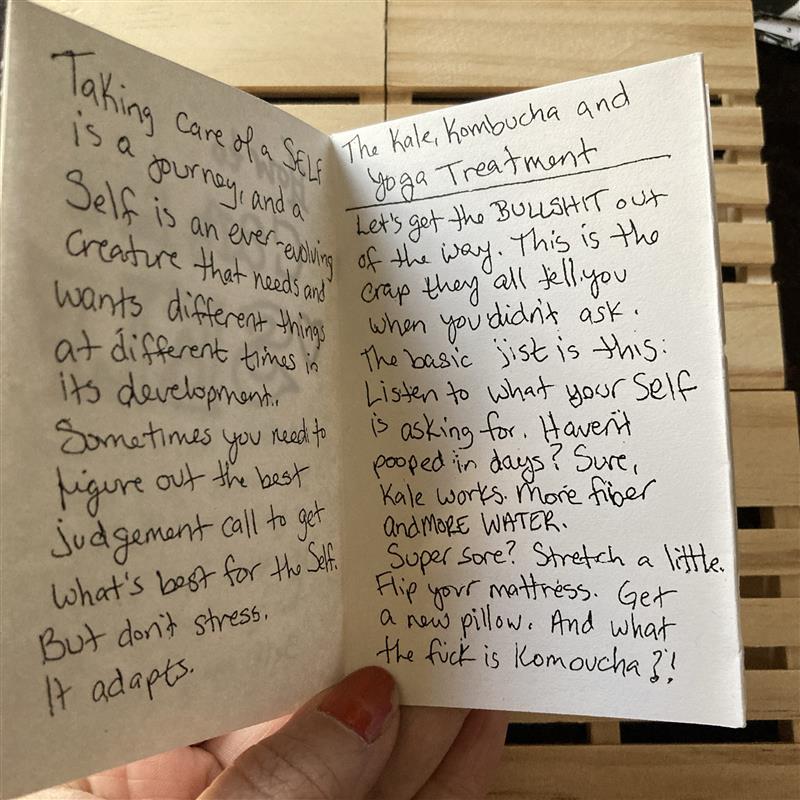 Taking care of a SELF
is a journey, and a
Self is an ever-evolving
creature that needs and
wants different things
at different times in
its development.
Sometimes you need to
figure out the best
judgement call to get
what's best for the Self.
But don't stress.
It adapts.
The Kale, Kombucha and
Yoga Treatment
Let's get the BULLSHIT out
of the way. This is the
crap they all tell you
when you didn't ask.
The basic jist is this:
Listen to what your Self
is asking for. Haven't
pooped in days? Sure,
Kale works. More fiber
and MORE WATER.
Super sore? Stretch a little.
Flip your mattress. Get
a new pillow. And what
the fuck is Komoucha?!